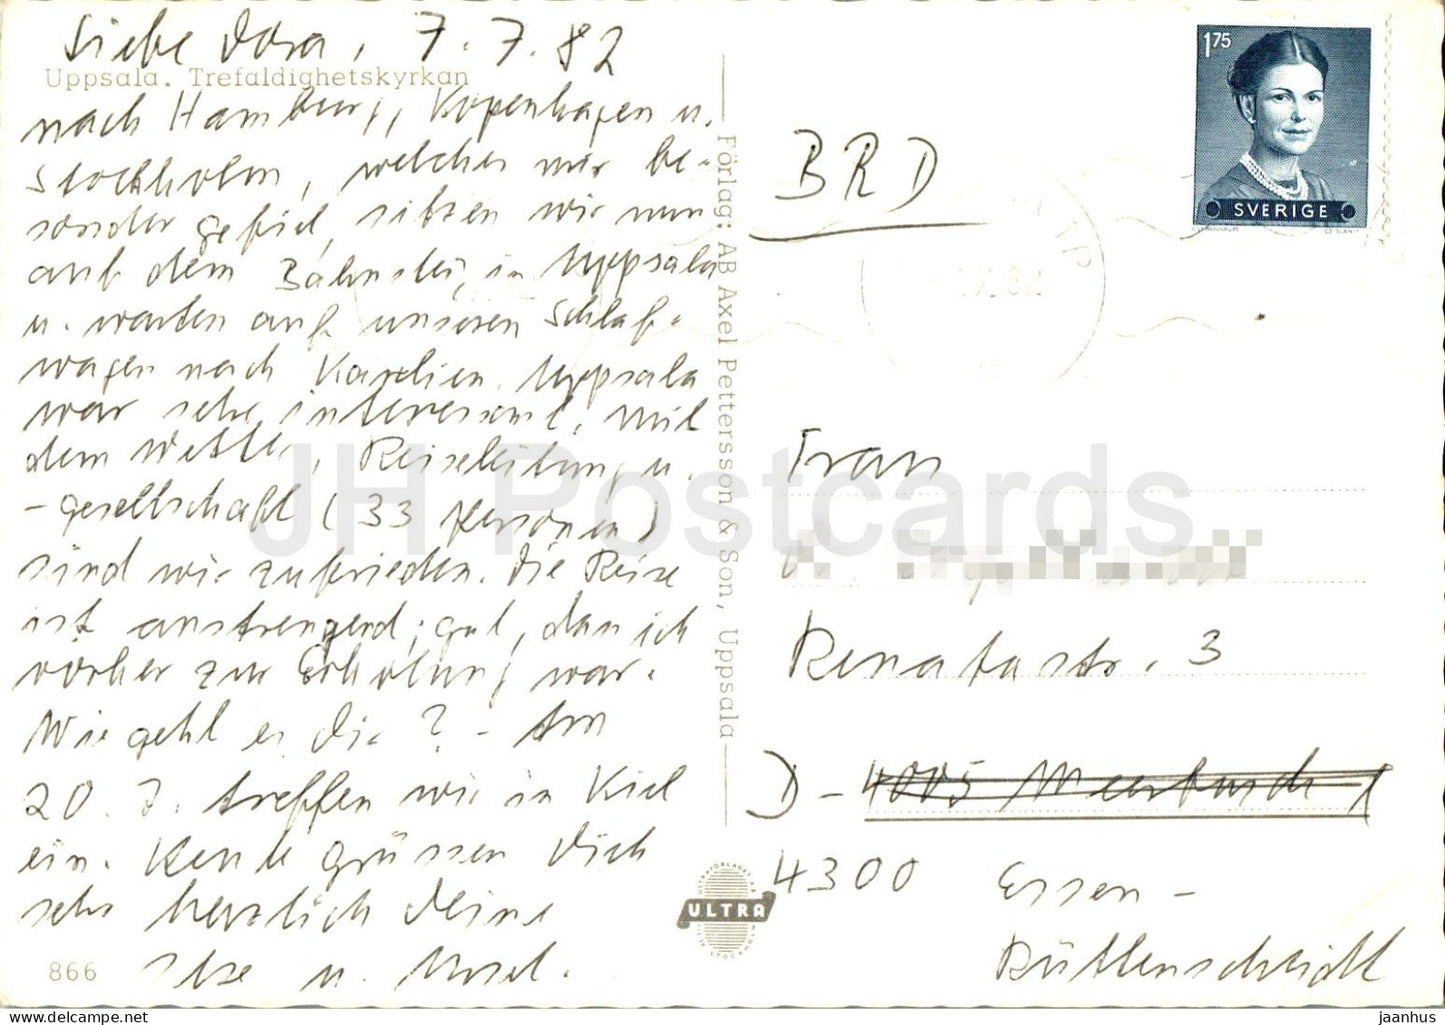 Liebe Dora, 7.7.82
Uppsala. Trefaldighetskyrkan
nach Hamburg, Kopenhagen u.
Stockholm, welches mir be-
sonders gefiel, sitzen wir nun
auf dem Bahnstei, in Uppsala
u. warten auf unseren Schlaf-
wagen nach Karelien. Uppsala
war sehr interessant. Mit
dem Wetter, Reiseleitung u.
-gesellschaft (33 Personen)
sind wir zufrieden. Die Reise
ist anstrengend; gut, dass ich
vorher zur Erholung war.
Wie geht es dir? - Am
20. 7. treffen wir in Kiel
ein. Heute grüssen Dich
sehr herzlich Deine
Ilse u.
866
Förlag: AB Axel Pettersson & Son, Uppsala
ULTRA
1 75
SVERIGE
BRD
Frau
Renatastr. 3
D - 4005 Meerbusch 1
4300 Essen -
Rüttenscheidt
JH Postcards
jaanhus.com